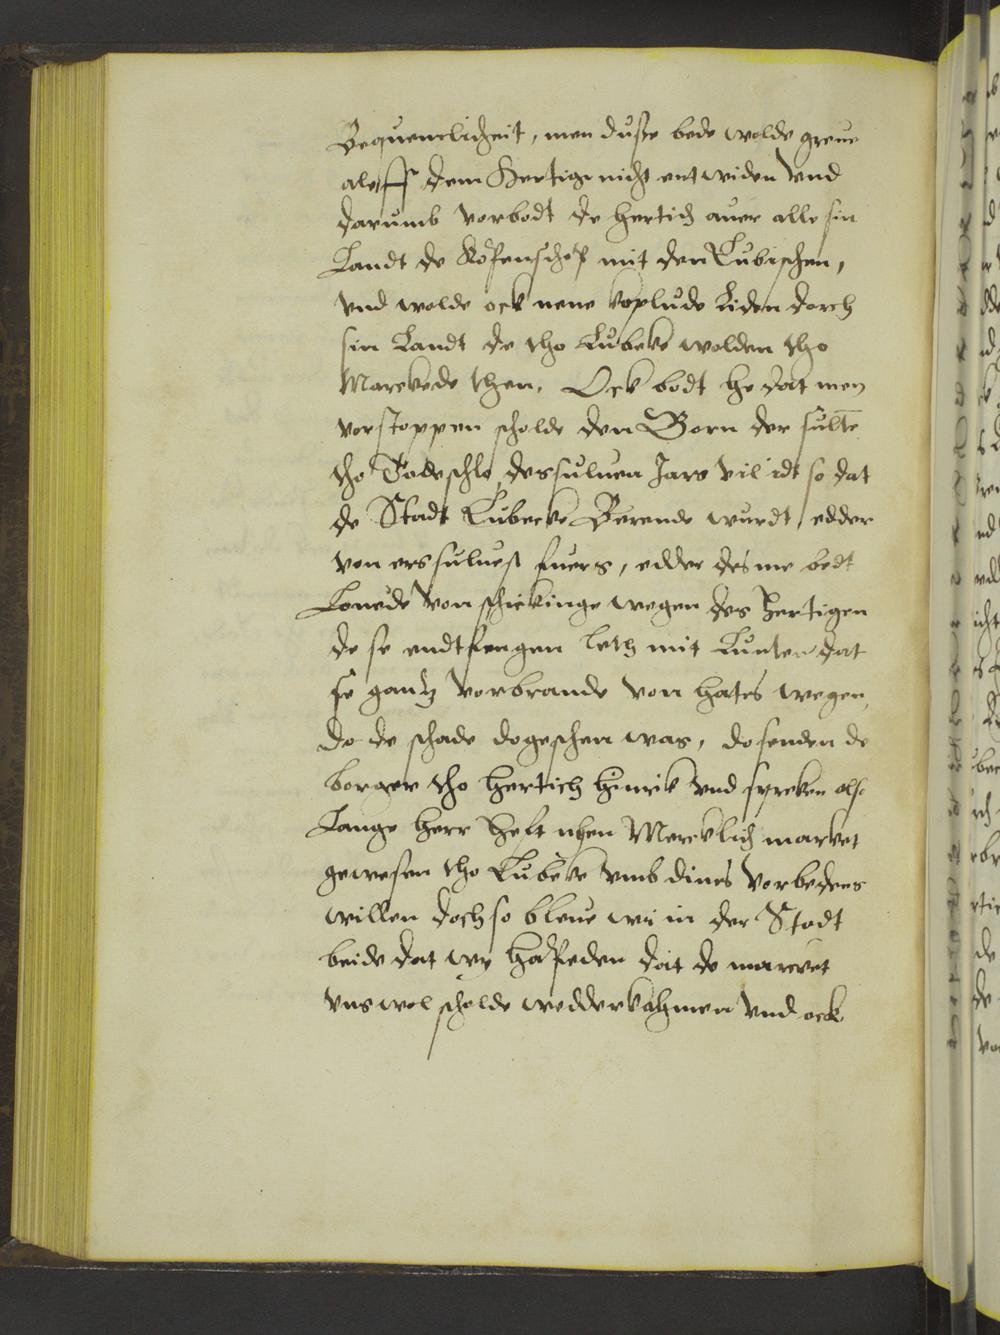 Bequemlicheit, men dusse bede wolde greue
aleff dem Hertige nicht entwiden Vnd
darumb vorbodt de hertich auer alle sin
Landt de Kopenschop mit den Lubischen,
vnd wolde ock nene koplude Liden dorch
sin Landt de tho Lubeke wolden tho
Marckede then. Ock bodt he dat men
vorstoppen scholde den Born der sulte
tho Todeschlo, dessuluen Jars vil idt so dat
de Stadt Lubecke Berende wurdt, edder
von erssulues fuers, edder des me bedt
Louede von schickinge wegen des Hertigen
de se endtfengen leth mit Lunten dat
se gantz vorbrande von hates wegen,
do de schade dogeschen was, do senden de
borger tho hertich Hinrik vnd spreken also
Lange herr heft nhen Mercklich market
gewesen tho Lubeke vmb dines vorbedens
willen doch so bleue wi in der Stadt
beide dat wy hadden dat de marcket
vns wol scholde wedderkahmen vnd ock